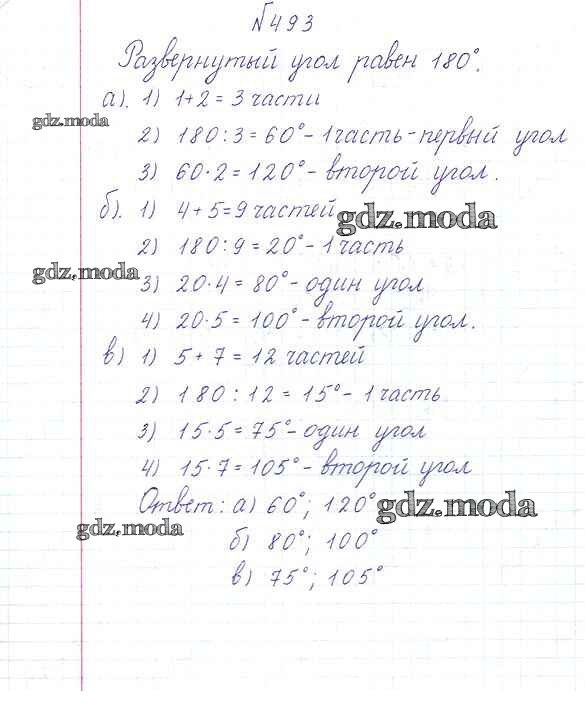 №493
Развернутый угол равен 180°.
а). 1) 1+2=3 части
gdz.moda
2) 180:3=60°-1 часть-первый угол
3) 60·2=120°-второй угол.
б). 1) 4+5=9 частей
gdz.moda
2) 180:9=20°-1 часть
gdz.moda
3) 20·4=80°-один угол
4) 20·5=100°-второй угол.
в) 1) 5+7=12 частей
2) 180:12=15°-1 часть
3) 15·5=75°-один угол
4) 15·7=105°-второй угол
Ответ: а) 60°; 120°
gdz.moda
gdz.moda
б) 80°; 100°
в) 75°; 105°